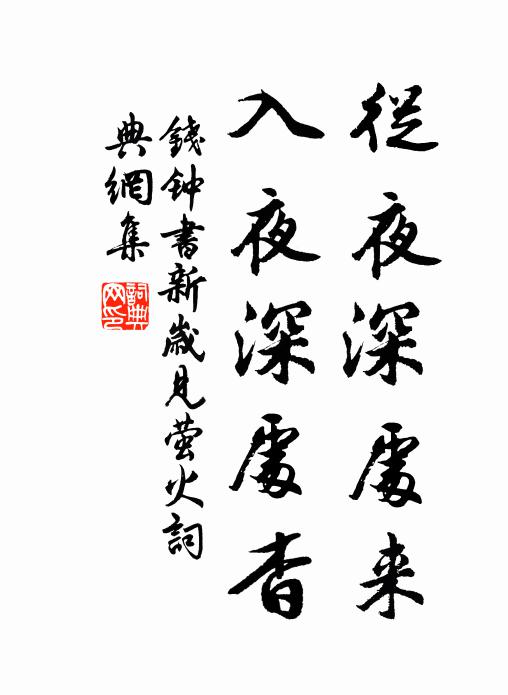 從夜深處来
入夜深處杳
錢鈡書新歲見萤火詞
典網集
詞典
网印